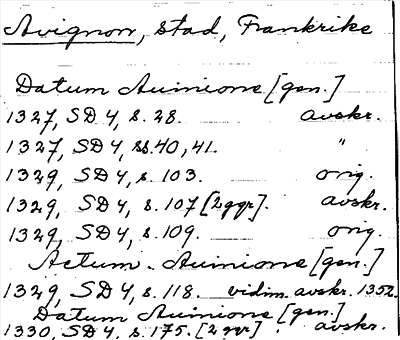 Avignon, stad, Frankrike
Datum Auinione [gen.]
1327, SD 4, s. 28. avskr.
1327, SD 4, ss. 40, 41. "
1329, SD 4, s. 103. orig.
1329, SD 4, s. 107 [2 ggr]. avskr.
1329, SD 4, s. 109. orig.
Actum. Auinione [gen.]
1329, SD 4, s. 118. vidim. avskr. 1352.
Datum Auinione [gen.]
1330, SD 4, s. 175. [2 ggr]. avskr.